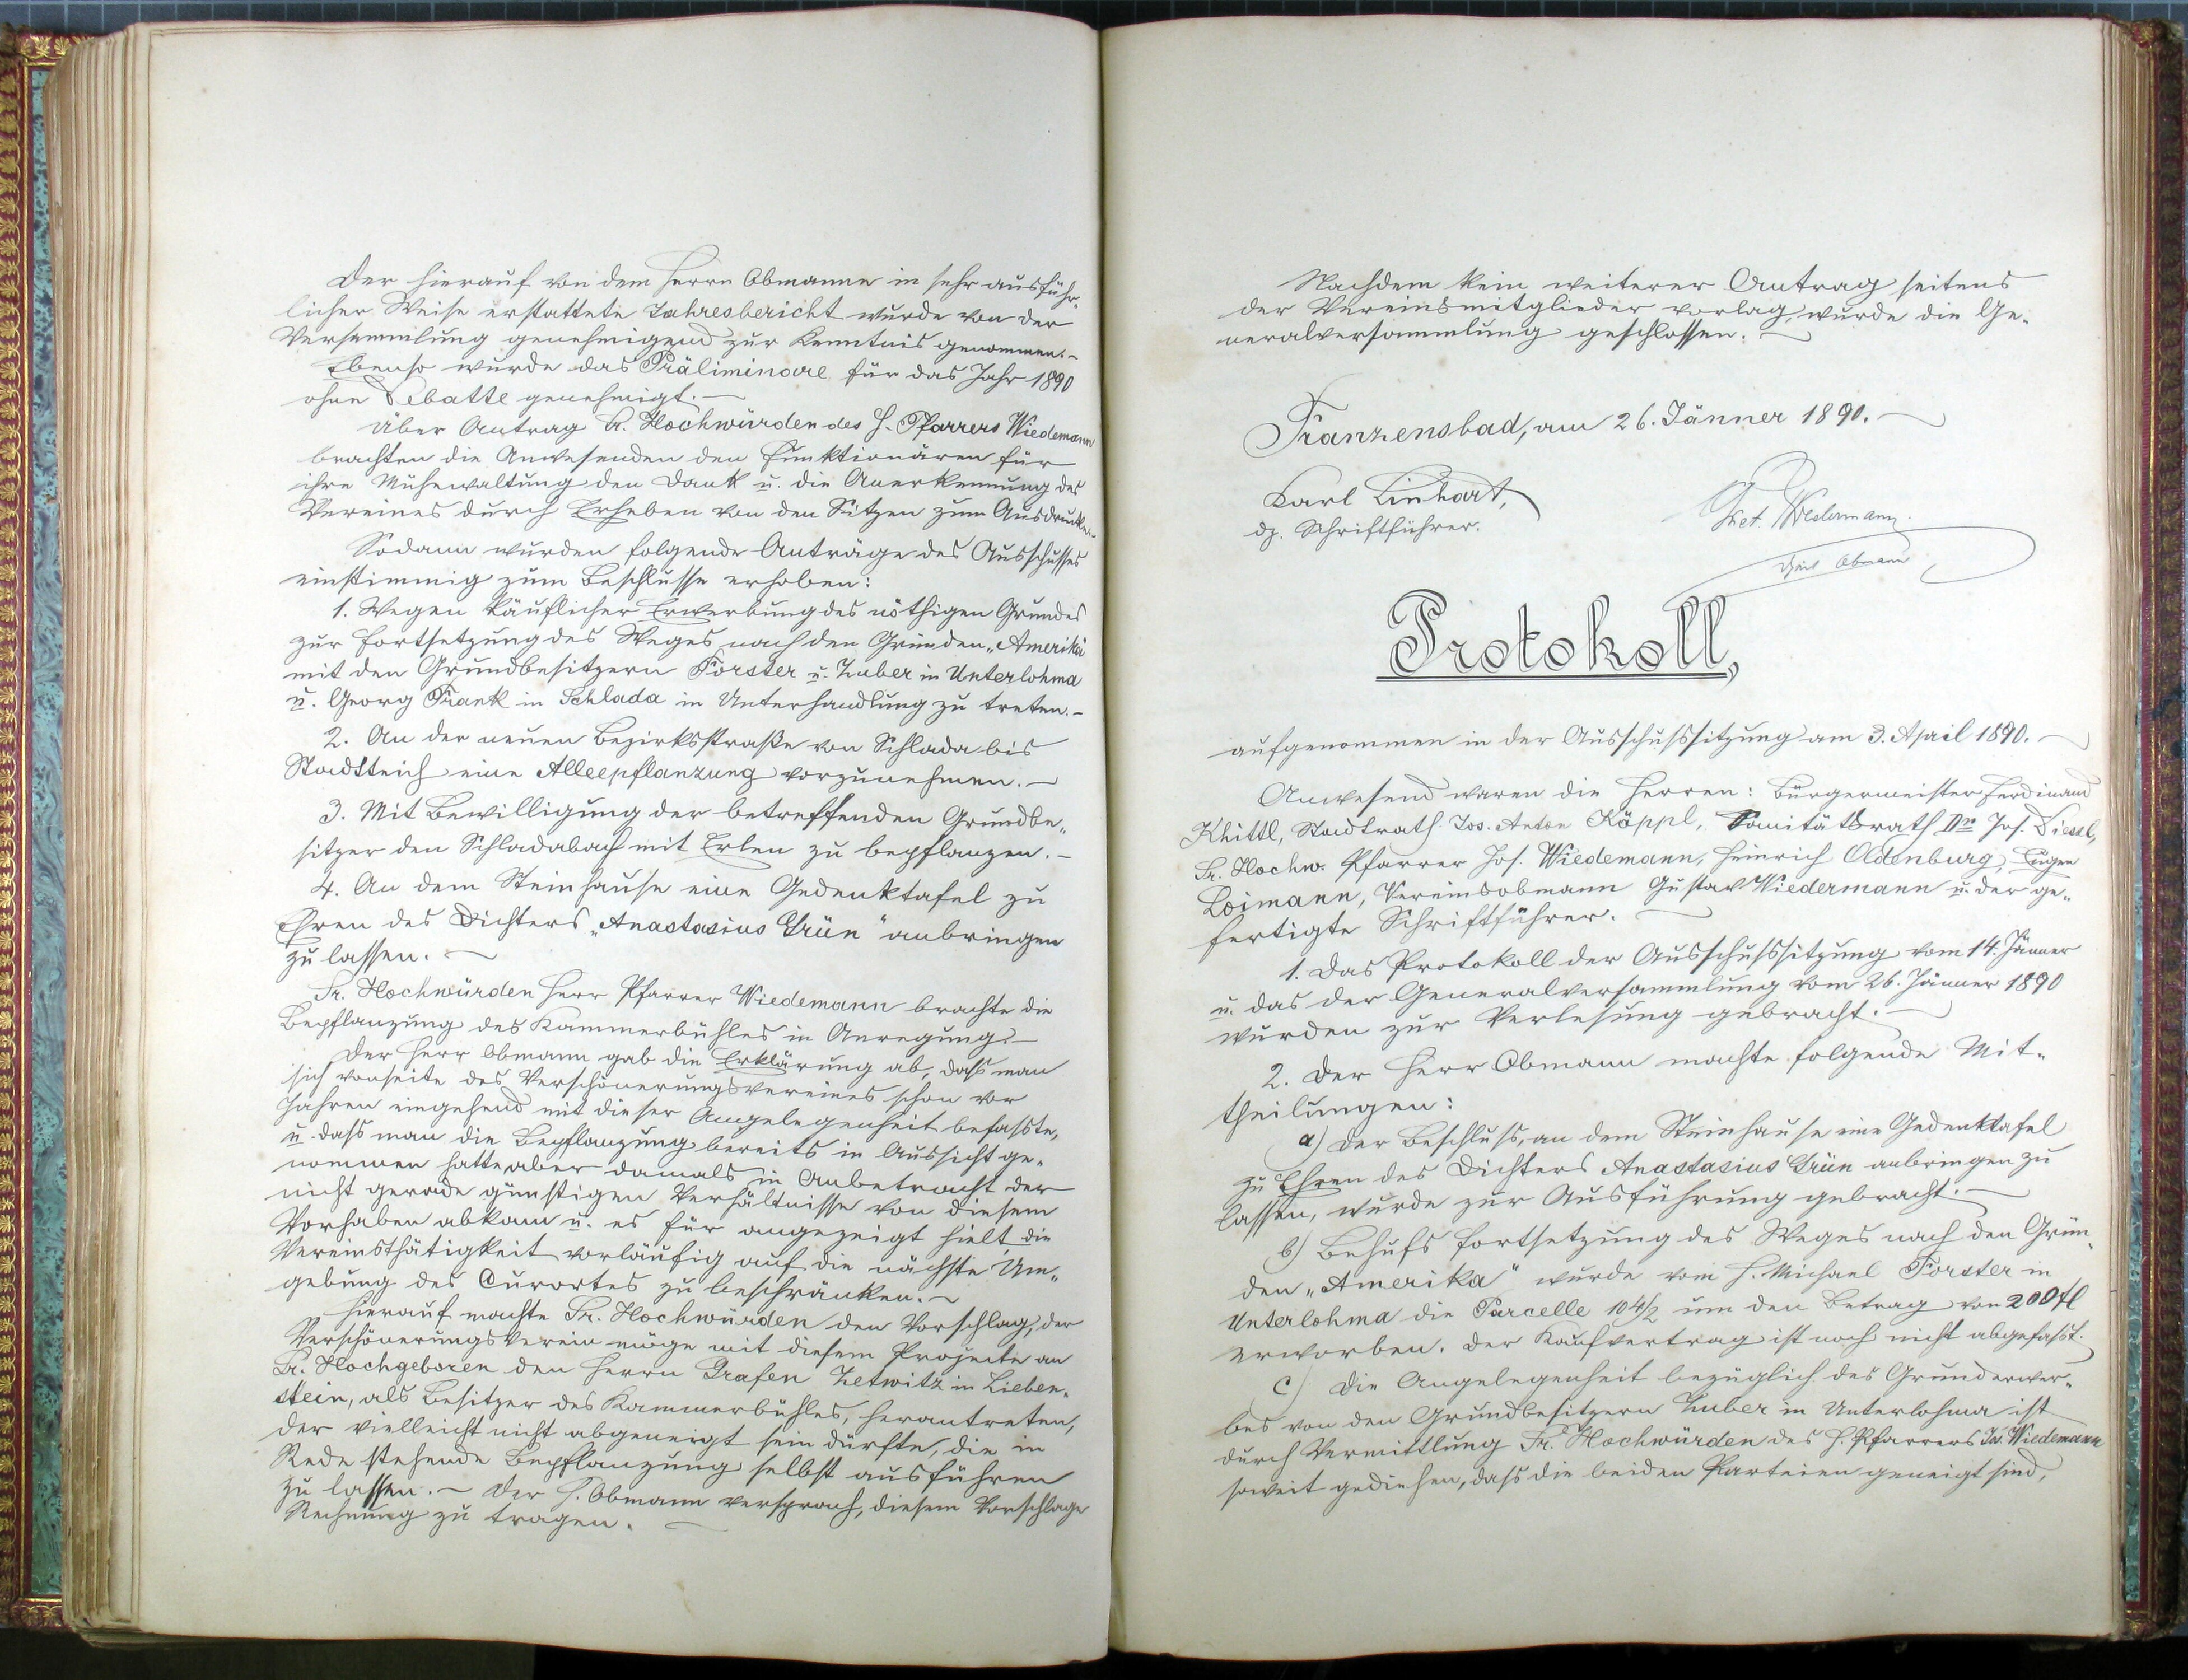 Der hierauf von dem Herrn Obmanne in sehr ausführ-
licher Weise erstattete Jahresbericht wurde von der
Versammlung genehmigend zur Kenntnis genommen. –
Ebenso wurde das Präliminare für das Jahr 1890
ohne Debatte genehmigt. –
Über Antrag Sr. Hochwürden des H. Pfarrers Wiedemann
brachten die Anwesenden den Funktionären für
ihre Mühewaltung den Dank u. die Anerkennung des
Vereines durch Erheben von den Sitzen zum Ausdrucke. –
Sodann wurden folgende Anträge des Ausschusses
einstimmig zum Beschlusse erhoben:
1. Wegen käuflicher Erwerbung des nöthigen Grundes
zur Fortsetzung des Weges nach den Gründen „Amerika“
mit den Grundbesitzern Forster u. Huber in Unterlohma
u. Georg Frank in Schlada in Unterhandlung zu treten. –
2. An der neuen Bezirksstraße von Schlada bis
Stadtteich eine Alleepflanzung vorzunehmen. –
3. Mit Bewilligung der betreffenden Grundbe-
sitzer den Schladabach mit Erlen zu bepflanzen. –
4. An dem Steinhause eine Gedenktafel zu
Ehren des Dichters „Anastasius Grün“ anbringen
zu lassen. –
Sr. Hochwürden Herr Pfarrer Wiedemann brachte die
Bepflanzung des Kammerbühles in Anregung. –
Der Herr Obmann gab die Erklärung ab, dass man
sich vonseite des Verschönerungsvereines schon vor
Jahren eingehend mit dieser Angelegenheit befasste,
u. dass man die Bepflanzung bereits in Aussicht ge-
nommen hatte aber damals in Anbetracht der
nicht gerade günstigen Verhältnisse von diesem
Vorhaben abkam u. es für angezeigt hielt, die
Vereinsthätigkeit vorläufig auf die nächste Um-
gebung des Curortes zu beschränken. –
Hierauf machte Sr. Hochwürden den Vorschlag, der
Verschönerungsverein möge mit diesem Projecte an
Sr. Hochgeboren den Herrn Grafen Zetwitz in Lieben-
stein, als Besitzer des Kammerbühles, herantreten,
der vielleicht nicht abgeneigt sein dürfte, die in
Rede stehende Bepflanzung selbst ausführen
zu lassen. – Der H. Obmann versprach, diesem Vorschlage
Rechnung zu tragen. –
Nachdem kein weiterer Antrag seitens
der Vereinsmitglieder vorlag, wurde die Ge-
neralversammlung geschlossen. –
Franzensbad, am 26. Jänner 1890. –
Karl Linhart,
dz. Schriftführer.
Wiedermann
Obmann
Protokoll,
aufgenommen in der Ausschußsitzung am 3. April 1890. –
Anwesend waren die Herren: Bürgermeister Ferdinand
Khittl, Stadtrath Jos. Anton Köppl, Sanitätsrath Dr. Jos. Diessl,
Sr. Hochw. Pfarrer Jos. Wiedemann, Heinrich Oldenburg, Eugen
Loimann, Vereinsobmann Gustav Wiedermann u. der ge-
fertigte Schriftführer. –
1. Das Protokoll der Ausschußsitzung vom 14. Jänner
u. das der Generalversammlung vom 26. Jänner 1890
wurden zur Verlesung gebracht. –
2. Der Herr Obmann machte folgende Mit-
theilungen:
a) Der Beschluss, an dem Steinhause eine Gedenktafel
zu Ehren des Dichters Anastasius Grün anbringen zu
lassen, wurde zur Ausführung gebracht. –
b) Behufs Fortsetzung des Weges nach den Grün-
den „Amerika“ wurde vom H. Michael Forster in
Unterlohma die Parcelle 104/2 um den Betrag von 200 fl
erworben. Der Kaufvertrag ist noch nicht abgefasst.
c) Die Angelegenheit bezüglich des Grunderwer-
bes von den Grundbesitzern Huber in Unterlohma ist
durch Vermittlung Sr. Hochwürden des H. Pfarrers Jos. Wiedemann
soweit gediehen, dass die beiden Parteien geneigt sind,